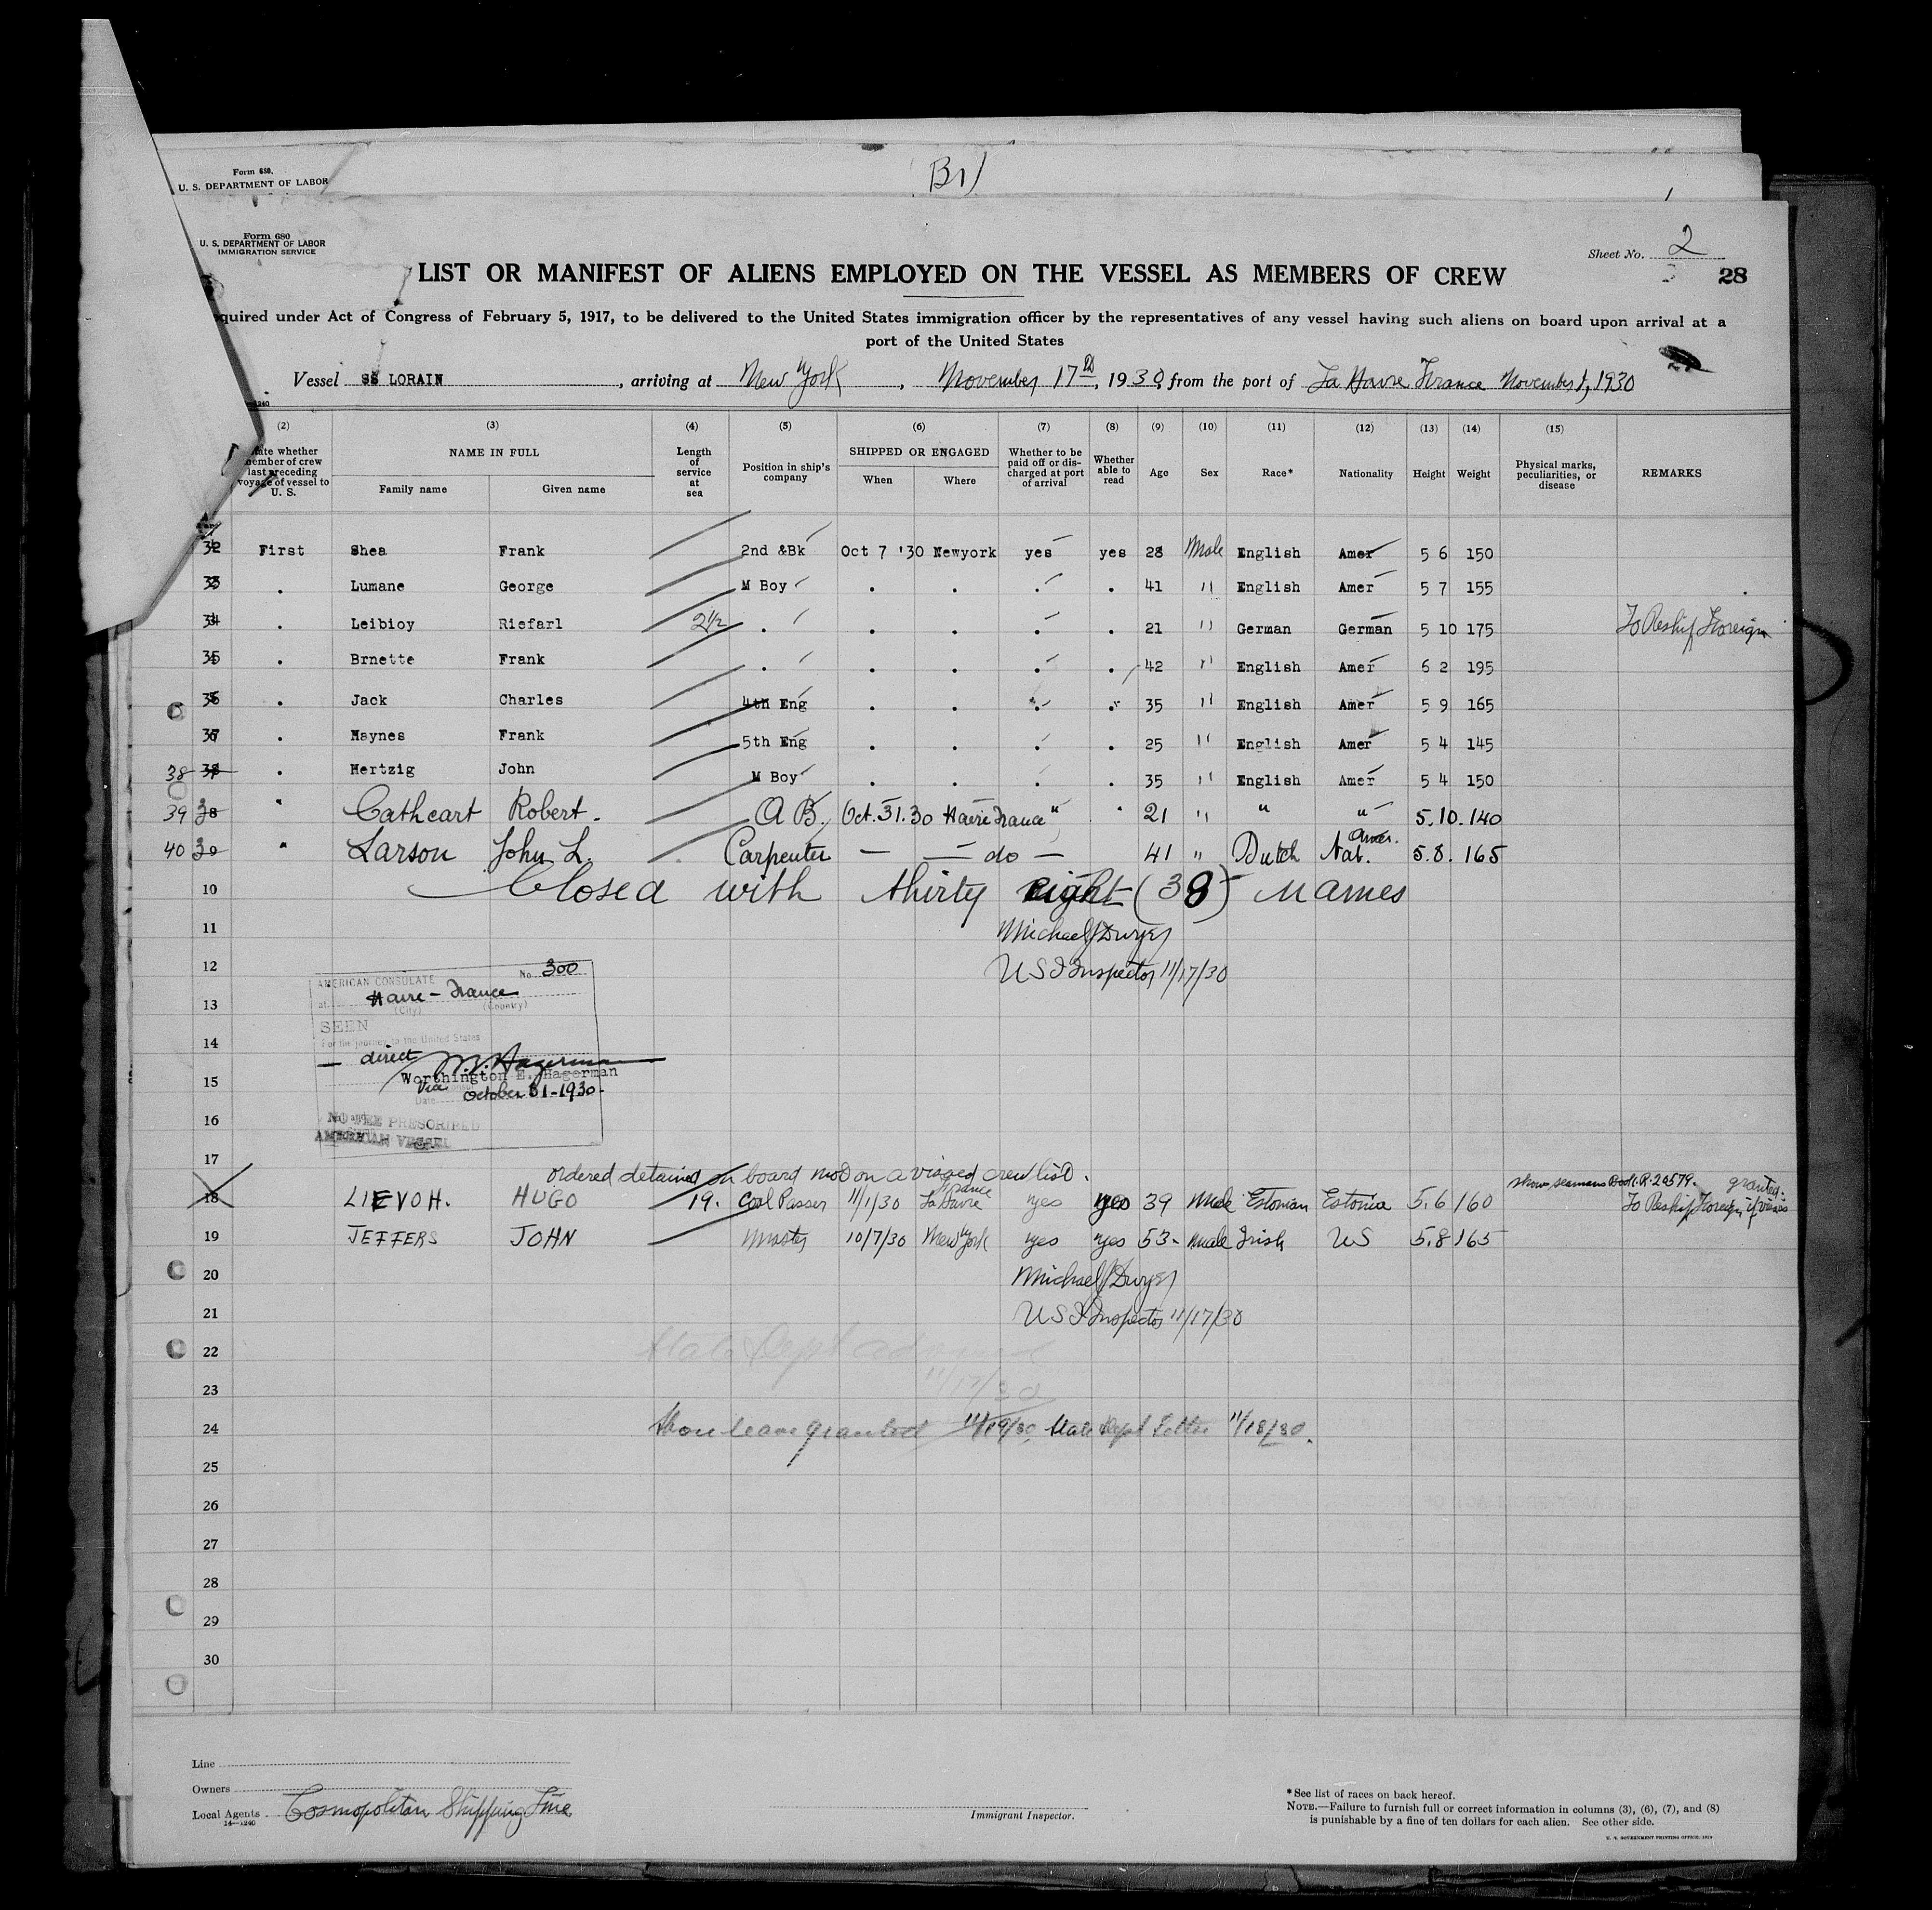 Form 680.
U. S. DEPARTMENT OF LABOR
Form 680
U. S. DEPARTMENT OF LABOR
IMMIGRATION SERVICE
Sheet No. 2
28
LIST OR MANIFEST OF ALIENS EMPLOYED ON THE VESSEL AS MEMBERS OF CREW
quired under Act of Congress of February 5, 1917, to be delivered to the United States immigration officer by the representatives of any vessel having such aliens on board upon arrival at a
port of the United States
Vessel SS LORAIN, arriving at New York, November 17th, 1930, from the port of La Havre France November 1, 1930
(2) (3) (4) (5) (6) (7) (8) (9) (10) (11) (12) (13) (14) (15)
ate whether member of crew last preceding voyage of vessel to U. S. NAME IN FULL Family name Given name Length of service at sea Position in ship's company SHIPPED OR ENGAGED When Where Whether to be paid off or discharged at port of arrival Whether able to read Age Sex Race* Nationality Height Weight Physical marks, peculiarities, or disease REMARKS
32 First Shea Frank 2nd &Bk Oct 7 '30 Newyork yes yes 28 Male English Amer 5 6 150
33 . Lumane George M Boy . . . . 41 " English Amer 5 7 155
34 . Leibioy Riefarl 2 1/2 . . . . . 21 " German German 5 10 175 To Reship Foreign
35 . Brnette Frank . . . . . 42 " English Amer 6 2 195
36 . Jack Charles 4th Eng . . . . 35 " English Amer 5 9 165
37 . Haynes Frank 5th Eng . . . . 25 " English Amer 5 4 145
38 . Hertzig John M Boy . . . . 35 " English Amer 5 4 150
39 38 " Cathcart Robert. A B. Oct. 31. 30 Havre France " . 21 " " " 5.10. 140
40 39 " Larson John L. Carpenter — — do — 41 " Dutch Nat. Amer. 5.8. 165
10 Closed with thirty eight (38) names
11 Michael J Dwyer
12 U S I Inspector 11/17/30
13
14
15
16
17
AMERICAN CONSULATE No. 300
at Havre - France
(City) (Country)
SEEN
For the journey to the United States
— direct W. E. Hagerman
Worthington E. Hagerman
Via
Date October 31-1930.
NO FEE PRESCRIBED
AMERICAN VESSEL
ordered detained on board not on a visaed crew list.
shows seamans Book. R. 20579. granted.
18 LIEVOH. HUGO 19. Coal Passer 11/1/30 La Havre France yes yes 39 Male Estonian Estonia 5.6 160 To Reship Foreign if visas
19 JEFFERS JOHN Master 10/7/30 New York yes yes 53 male Irish US 5.8 165
20 Michael J Dwyer
21 U S I Inspector 11/17/30
22 State Dept
23 11/17/30
24 Shore leave granted 11/19/30 State Dept Letter 11/18/30.
25
26
27
28
29
30
Line
Owners
Local Agents Cosmopolitan Shipping Line
14—1240
Immigrant Inspector.
*See list of races on back hereof.
NOTE.—Failure to furnish full or correct information in columns (3), (6), (7), and (8)
is punishable by a fine of ten dollars for each alien. See other side.